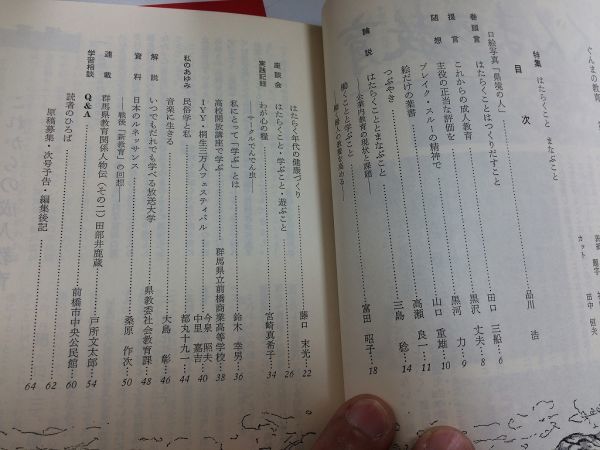 ぐんまの教育
特集 はたらくこと まなぶこと
目次
口絵写真「県境の人」……品川 浩
巻頭言 はたらくことはつくりだすこと……田口 三船…6
提言 これからの成人教育……黒沢 丈夫…8
主役の正当な評価を……黒河 力…9
随想 ブレイク・スルーの精神で……山口 重雄…10
絵だけの葉書……高瀬 良一…11
つぶやき……三島 稔…14
論説 はたらくこととまなぶこと
――企業内教育の現状と課題――……富田 昭子…18
働くことと学ぶこと
座談会 はたらく年代の健康づくり……藤口 末光…22
はたらくこと・学ぶこと・遊ぶこと……26
実践記録 わが心の糧
――サークルでんでん虫――……宮崎真希子…34
私にとって「学ぶ」とは……鈴木 幸男…36
高校開放講座で学ぶ……群馬県立前橋商業高等学校…38
IYY・桐生三万人フェスティバル……今泉 照夫
中里 嘉吉…40
私のあゆみ 民俗学と私……都丸十九一…44
音楽に生きる……大島 彰…46
解説 いつでもだれでも学べる放送大学……県教委社会教育課…48
資料 日本のルネッサンス
――戦後「新教育」の回想――……桑原 作次…50
連載 群馬県教育関係人物伝(その二)田部井鹿蔵……戸所文太郎…54
学習相談 Q&A……前橋市中央公民館…60
読者のひろば……62
原稿募集・次号予告・編集後記……64
カット 田中 恒夫